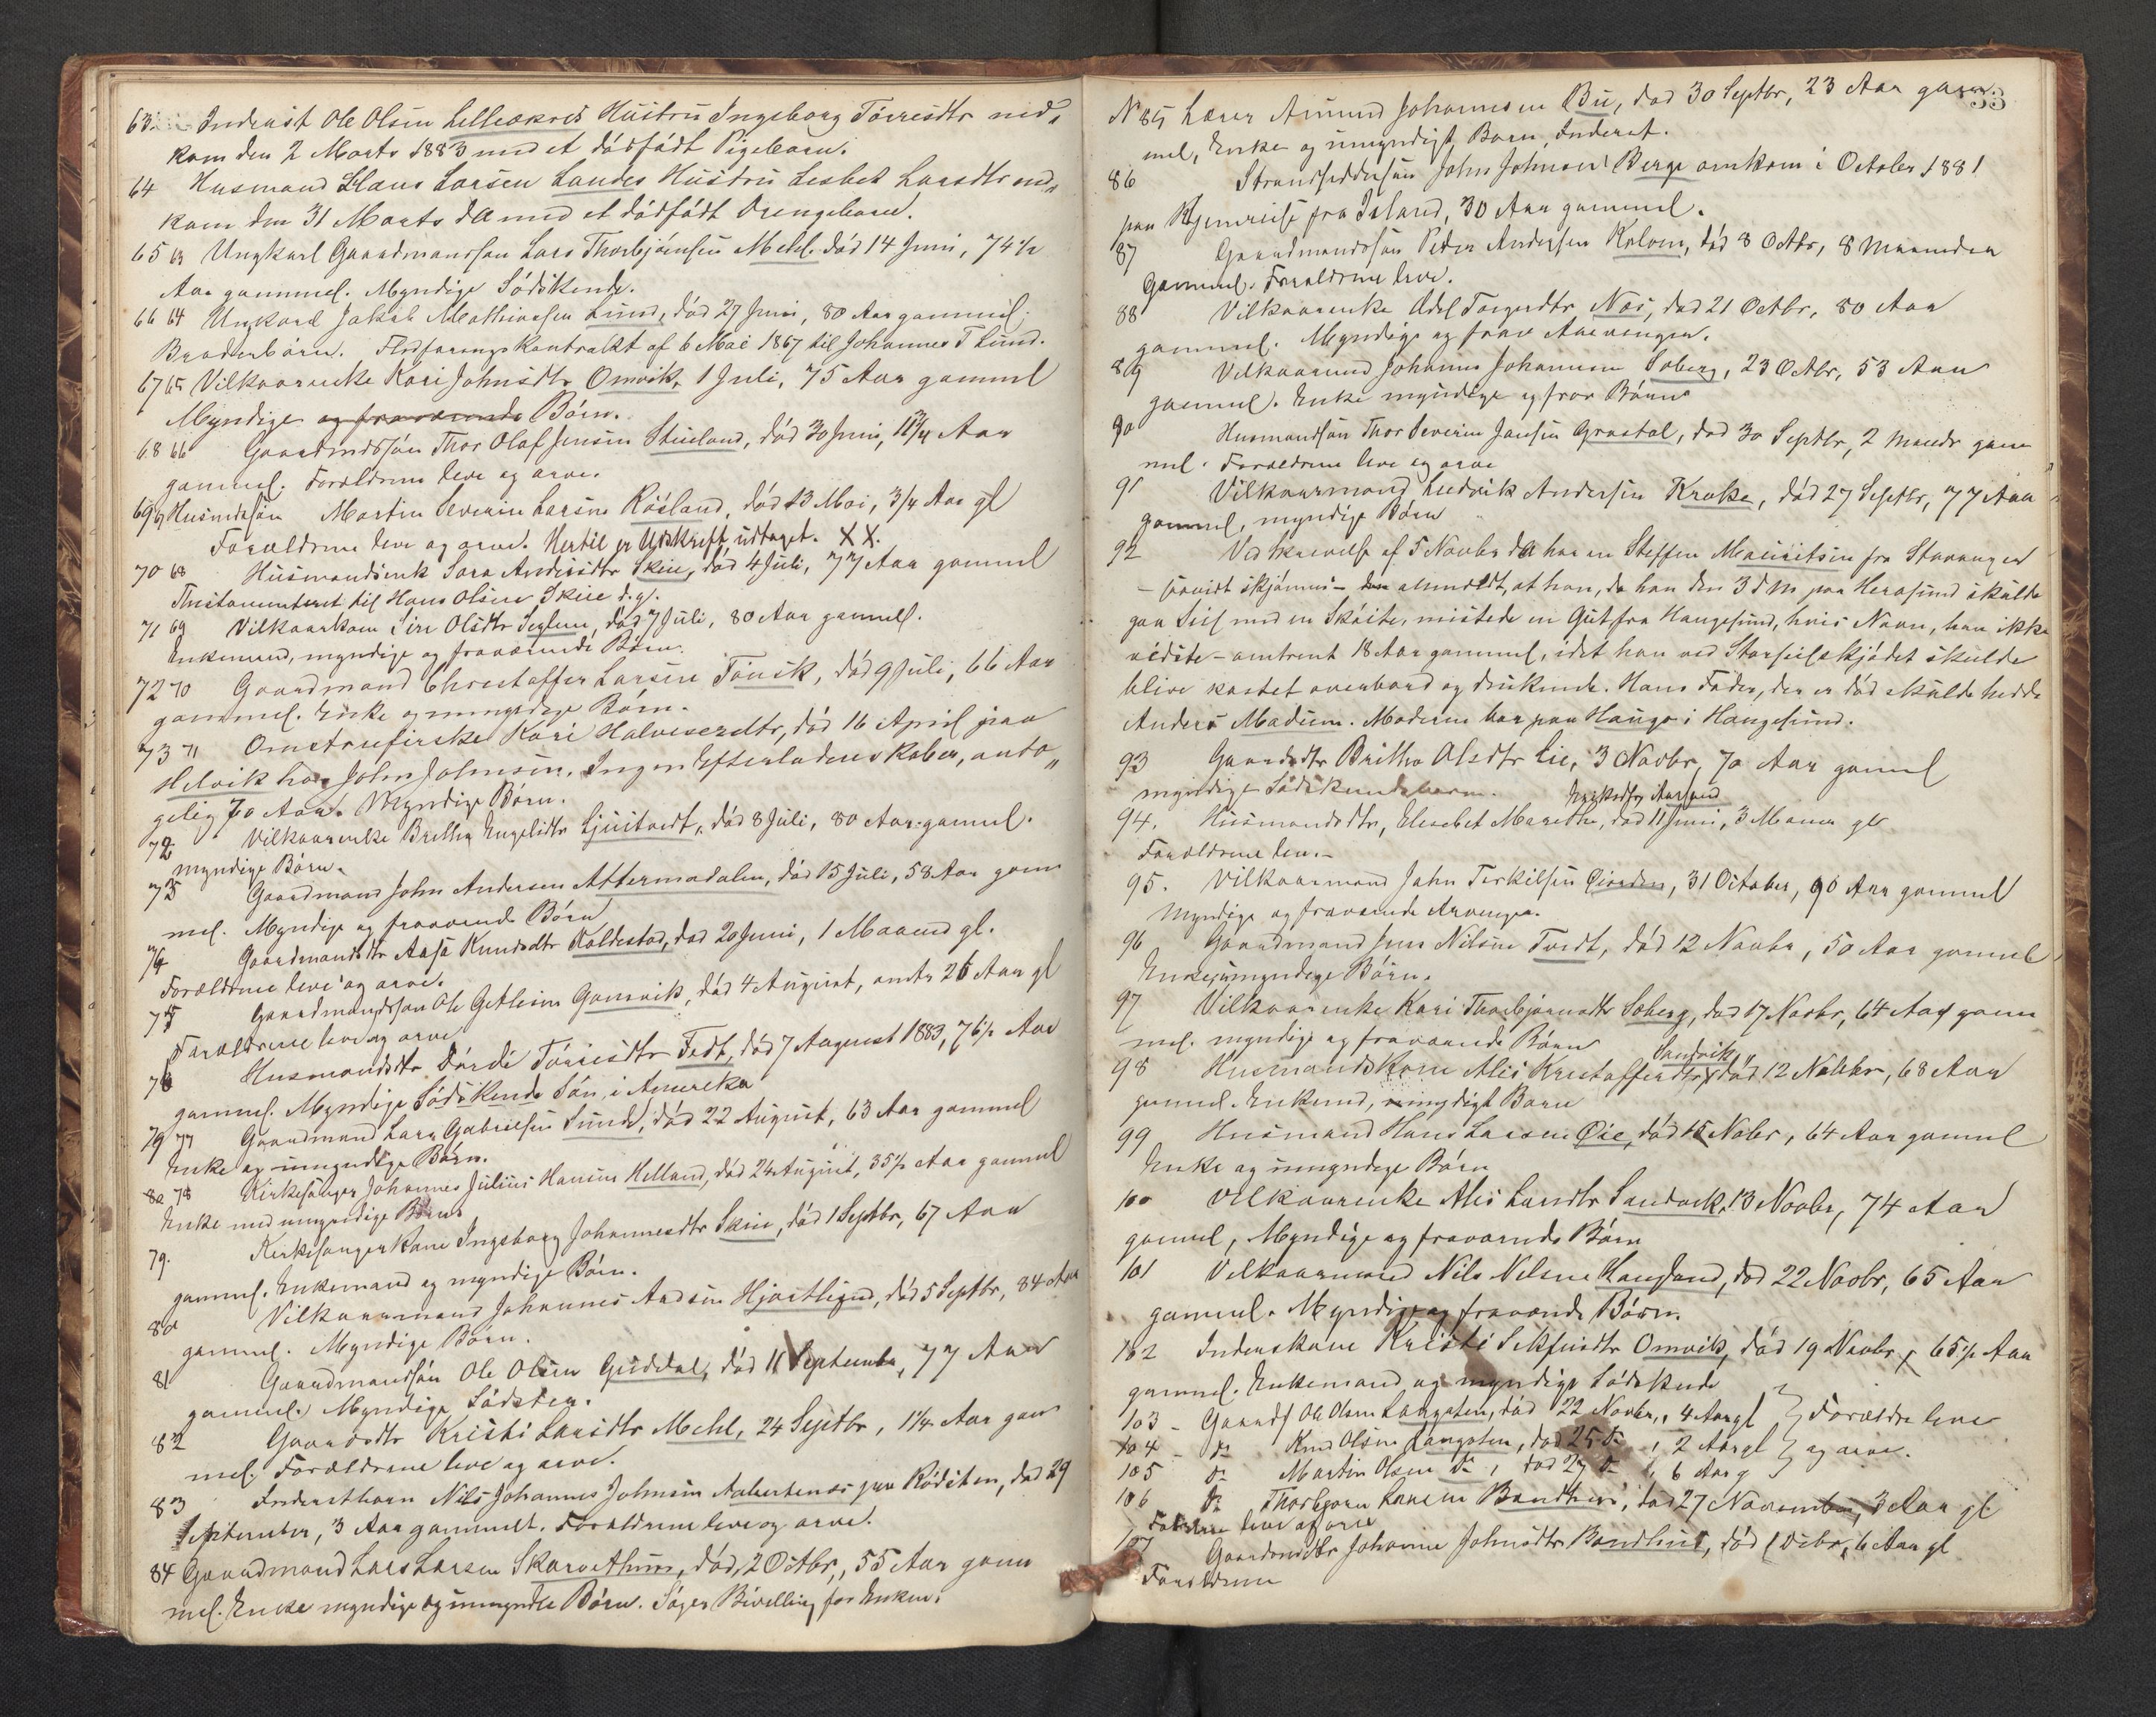 63. Inderst Ole Olsen Lilleakres Hustru Ingeborg Tørresdtr ned„
kom den 2 Marts 1883 med et dødfødt Pigebarn.
64 Husmand Hans Larsen Landes Hustru Lisbet Larsdtr ned„
kom den 31 Marts da med et dødfødt Drengebarn.
65 63 Ungkarl Gaardmandssøn Lars Thorbjørnsen Mehl. død 14 Juni, 74 1/2
Aar gammel. Myndige Sødskende.
66 64 Ungkarl Jakob Mathiassen Lund, død 27 Juni, 80 Aar gammel.
Broderbørn. Flodføringskontrakt af 6 Mai 1867 til Johannes T Lund.
67 65 Vilkaarenke Kari Johnsdtr Omvik, 1 Juli, 75 Aar gammel
Myndige og fraværende Børn.
68 66 Gaardmdssøn Thor Olaf Jensen Stueland, død 30 Juni, Aar
gammel. Forældrene leve og arve.
69 Husmdssøn Martin Severin Larsen Røsland, død 13 Mai, 3/4 Aar gl
Forældrene leve og arve. Hertil er Udskrift udtaget. X X.
70 68 Husmandsenk Sara Andersdtr Skeie, død 4 Juli, 77 Aar gammel
Thestamenteret til Hans Olsen Skeie d.y.
71 69 Vilkaarkone Siri Olsdtr Seglem, død 7 Juli, 80 Aar gammel.
Enkemand, myndige og fraværende Børn.
72 70 Gaardmand Christoffer Larsen Tønsk, død 9 Juli, 66 Aar
gammel. Enke og umyndige Børn.
73 71 Omstreiferske Kari Halvorsdtr, død 16 April paa
Helvik hos John Johnsen. Ingen Efterladenskaber, anta„
gelig 70 Aar. Myndige Børn.
72 Vilkaarenke Britha Engelsdtr Ljustvedt, død 8 Juli, 80 Aar gammel.
myndige Børn.
73 Gaardmand John Andersen Attermadalen, død 15 Juli, 58 Aar gam
mel. Myndige og fraværende Børn
74 Gaardmandsdtr Aasa Knudsdtr Koldestad, død 20 Juni, 1 Maaned gl.
Forældrene leve og arve.
75 Gaardmandssøn Ole Getleivn Gamvik, død 4 August, omtr 26 Aar gl
Forældrene leve og arve
76 Husmandsdtr Dørdi Tørrisdtr Fedt, død 7 August 1883, 76 1/2 Aar
gammel. Myndige Sødskende Søn i Amerika
79 77 Gaardmand Lars Gabrielsen Sunde, død 22 August, 63 Aar gammel
Enke og umyndige Børn.
80 78 Kirkesanger Johannes Julius Hansen Helland, død 24 August, 35 1/2 Aar gammel
Enke med umyndige Børn
79. Kirkesangerkone Ingeborg Johannesdtr Skeie, død 1 Septbr, 67 Aar
gammel. Enkemand og myndige Børn.
80 Vilkaarmand Johannes Hjortland, død 5 Septbr, 84 Aar
gammel. Myndige Børn.
81 Gaardmandssøn Ole Olsen Guddal, død 11 September, 77 Aar
gammel. Myndige Sødsken.
82 Gaardsdtr Kristi Larsdtr Mehl, 24 Septbr, 1 1/4 Aar gam
mel. Forældrene leve og arve.
83 Inderstbarn Nils Johannes Johnsen paa Rødsten, død 29
September, 3 Aar gammelt. Forældrene leve og arve.
84 Gaardmand Lars Larsen Skarvethun, død 2 Octbr., 55 Aar gam
mel. Enke myndige og umyndie Børn. Søger Bevilling for Enken.
33
N 85 Lærer Amund Johannesen Bu, død 30 Septbr, 23 Aar gam
mel, Enke og umyndigt Barn, Inderst.
86 Strandsiddersøn John Johnsen Berge omkom i October 1881
paa Hjemreise fra Island, 30 Aar gammel.
87 Gaardmandssøn Peder Andersen Kolven, død 8 Octbr, 8 Maaneder
gammel. Forældrene leve.
88 Vilkaarenke Adel Torgersdtr Nas, død 21 Octbr, 80 Aar
gammel. Myndige og frav Arvinger.
89 Vilkaarmd Johannes Johannesen Soberg, 23 Octbr, 53 Aar
gammel. Enke myndige og frav Børn
90 Husmandssøn Thor Severin Jansen Grostøl, død 30 Septbr, 2 Maneder gam
mel. Forældrene leve og arve
91 Vilkaarmand Ludvik Andersen Krake, død 27 Septbr, 77 Aar
gammel, myndige Børn
92 Ved Skrivelse af 5 Novbr da har en Steffen Mauritsen fra Stavanger
– saavidt skjønnes – anmeldt, at han, da han den 3 d M paa Herøsund skulde
gaa Seil med en Skøite, mistede en Gut fra Haugesund, hvis Navn, han ikke
vidste – omtrent 18 Aar gammel, idet han ved Storseilskjødet skulde
blive kastet overbord og druknede. Hans Fader, der er død skulde hedde
Anders Madsen. Moderen bor paa Hauge i Haugesund.
93 Gaardsdtr Britha Olsdtr Lie, 3 Novbr, 70 Aar gammel
myndige Sødskendebørn.
94. Husmandsdtr, Elisebet Marethe, død 11 Juni, 3 Maaneder gl
Forældrene leve.–
95. Vilkaarmand John Terkilsen, 31 October, 90 Aar gammel
Myndige og fraværende Arvinger.
96 Gaardmand Jens Nilsen Tvedt, død 12 Novbr, 50 Aar gammel
Enke, umyndige Børn.
97 Vilkaarenke Kari Thorbjørnsdtr Soberg, død 17 Novbr, 64 Aar gam
mel. myndige og fraværende Børn
98 Husmandskone Alis Kristoffersdtr Sandvik, død 12 Novbr, 68 Aar
gammel. Enkemd, umyndigt Barn
99 Husmand Hans Larsen Øie, død 15 Nobr, 64 Aar gammel
Enke og umyndige Børn
100 Vilkaarenke Alis Larsdtr Sandvik, 13 Novbr, 74 Aar
gammel, Myndige og fraværende Børn
101 Vilkaarmand Nils Nilsen Haugland, død 22 Novbr, 65 Aar
gammel. Myndige og fraværende Børn.
102 Inderskone Kristi Sekseindtr Omvik, død 19 Novbr, 65 1/2 Aar
gammel. Enkemand og myndige Sødskende
103 – Gaards Ole Olsen Langsten, død 22 Novbr, 4 Aar gl } Forældre leve
104 – do Knud Olsen Langsten, død 25 do, 2 Aar gl } og arve.
105 do Martin Olsen do, død 27 do, 6 Aar g
106 do Thorbjørn Larsen Bondhus, død 27 November, 3 Aar gl
Forældrene leve og arve
107 Gaardmdsdtr Johanne Johnsdtr Bondhus, død 1 Debr, 6 Aar gl
Forældrene